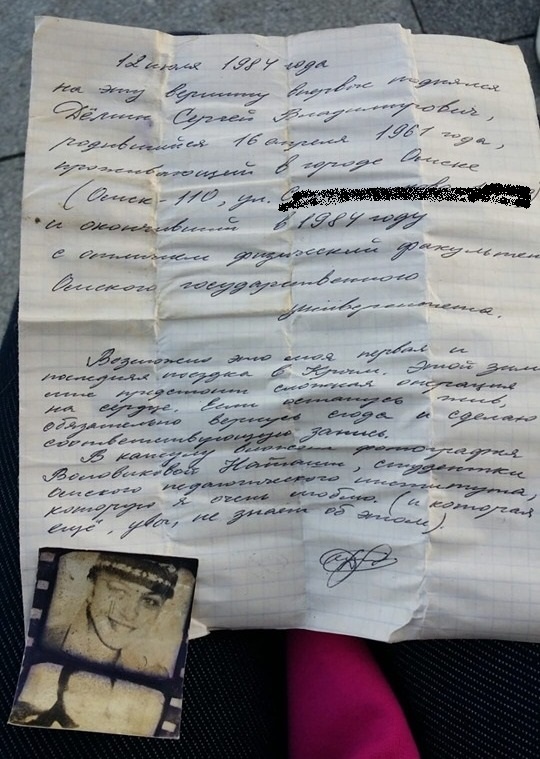 12 июля 1984 года
на эту вершину впервые поднялся
Дёмин Сергей Владимирович,
родившийся 16 апреля 1961 года,
проживающий в городе Омске
(Омск-110, ул.
и окончивший в 1984 году
с отличием физический факультет
Омского государственного
университета.
Возможно это моя первая и
последняя поездка в Крым. Этой зимой
мне предстоит сложная операция
на сердце. Если останусь жив,
обязательно вернусь сюда и сделаю
соответствующую запись.
В капсулу вложена фотография
Воловиковой Наташи, студентки
омского педагогического института,
которую я очень люблю. (и которая
ещё, увы, не знает об этом)